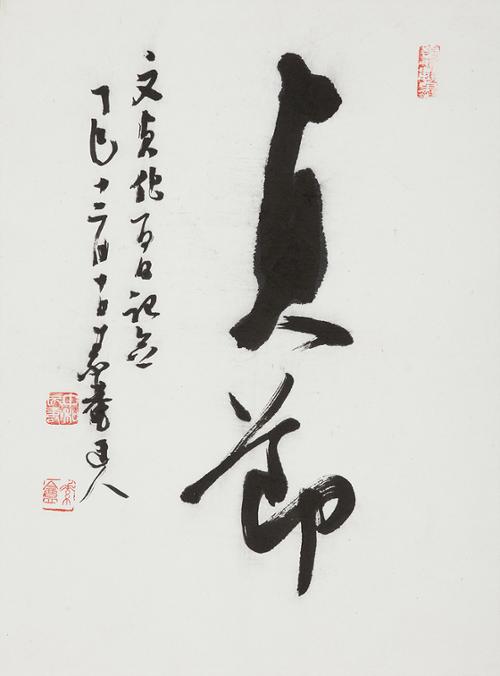 貞節
文貞化百日記念
丁巳十二月十日素菴道人